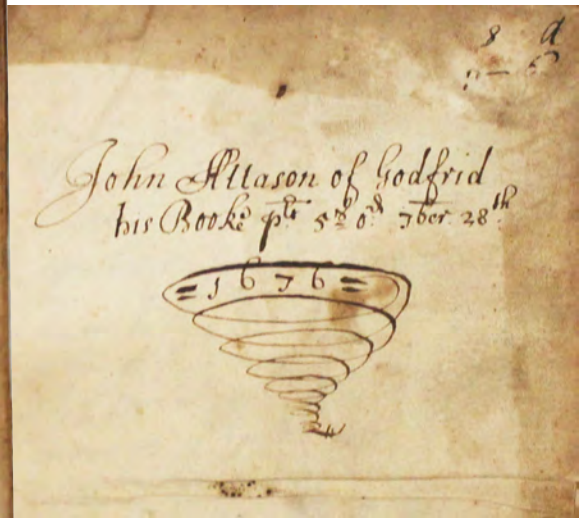 s d
John Allason of Godfrid
his Booke ptr 5s 0d 7ber 28th
= 1676 =